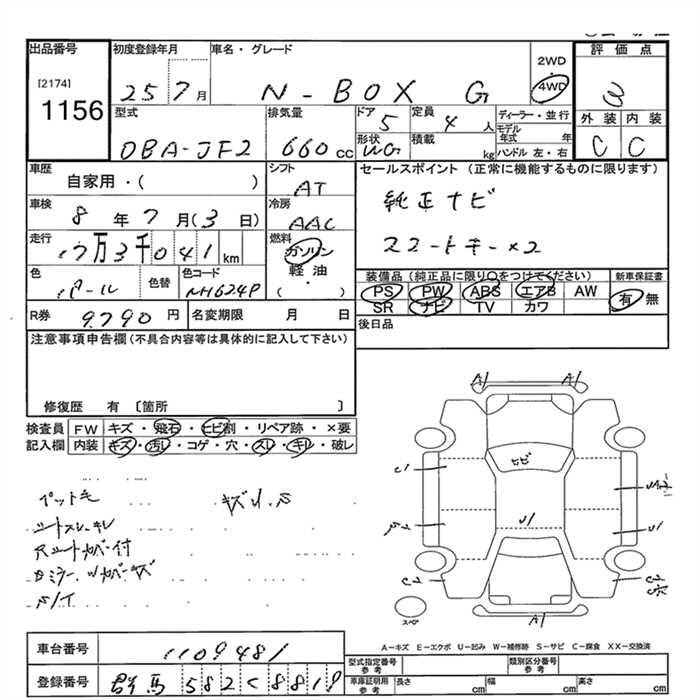 出品番号 初度登録年月 車名・グレード 2WD 評価点
[2174] 1156 25 7月 N-BOX G 4WD 3
型式 排気量 ドア 定員 ディーラー・並行 外装 内装
DBA-JF2 660cc 5 4人 モデル年式 年 C C
形状 WG 積載 kg ハンドル 左・右
車歴 シフト セールスポイント (正常に機能するものに限ります)
自家用・( ) AT
純正ナビ
車検 冷房
8年7月(3日) AAC
スマートキー×2
走行 燃料
17万3千041km ガソリン
軽油・( )
色 色替 色コード 装備品(純正品に限り○をつけてください) 新車保証書
パール NH624P PS PW ABS エアB AW 有 無
SR ナビ TV カワ
R券 9,790円 名変期限 月 日 後日品
注意事項申告欄(不具合内容等は具体的に記入して下さい)
修復歴 有 〔箇所 〕
検査員記入欄 FW キズ・飛石・ヒビ割・リペア跡・×要
内装 キズ・汚レ・コゲ・穴・スレ・キレ・破レ
ペット毛 キズ
シートスレ・キレ
A1 A1
ヒビ
U1
A1
スペア
A-キズ E-エクボ U-凹み W-補修跡 S-サビ C-腐食 XX-交換済
車台番号 1109481 型式指定番号 参考 類別区分番号 参考
登録番号 群馬582く8819 車庫証明用 参考 長さ cm 幅 cm 高さ cm